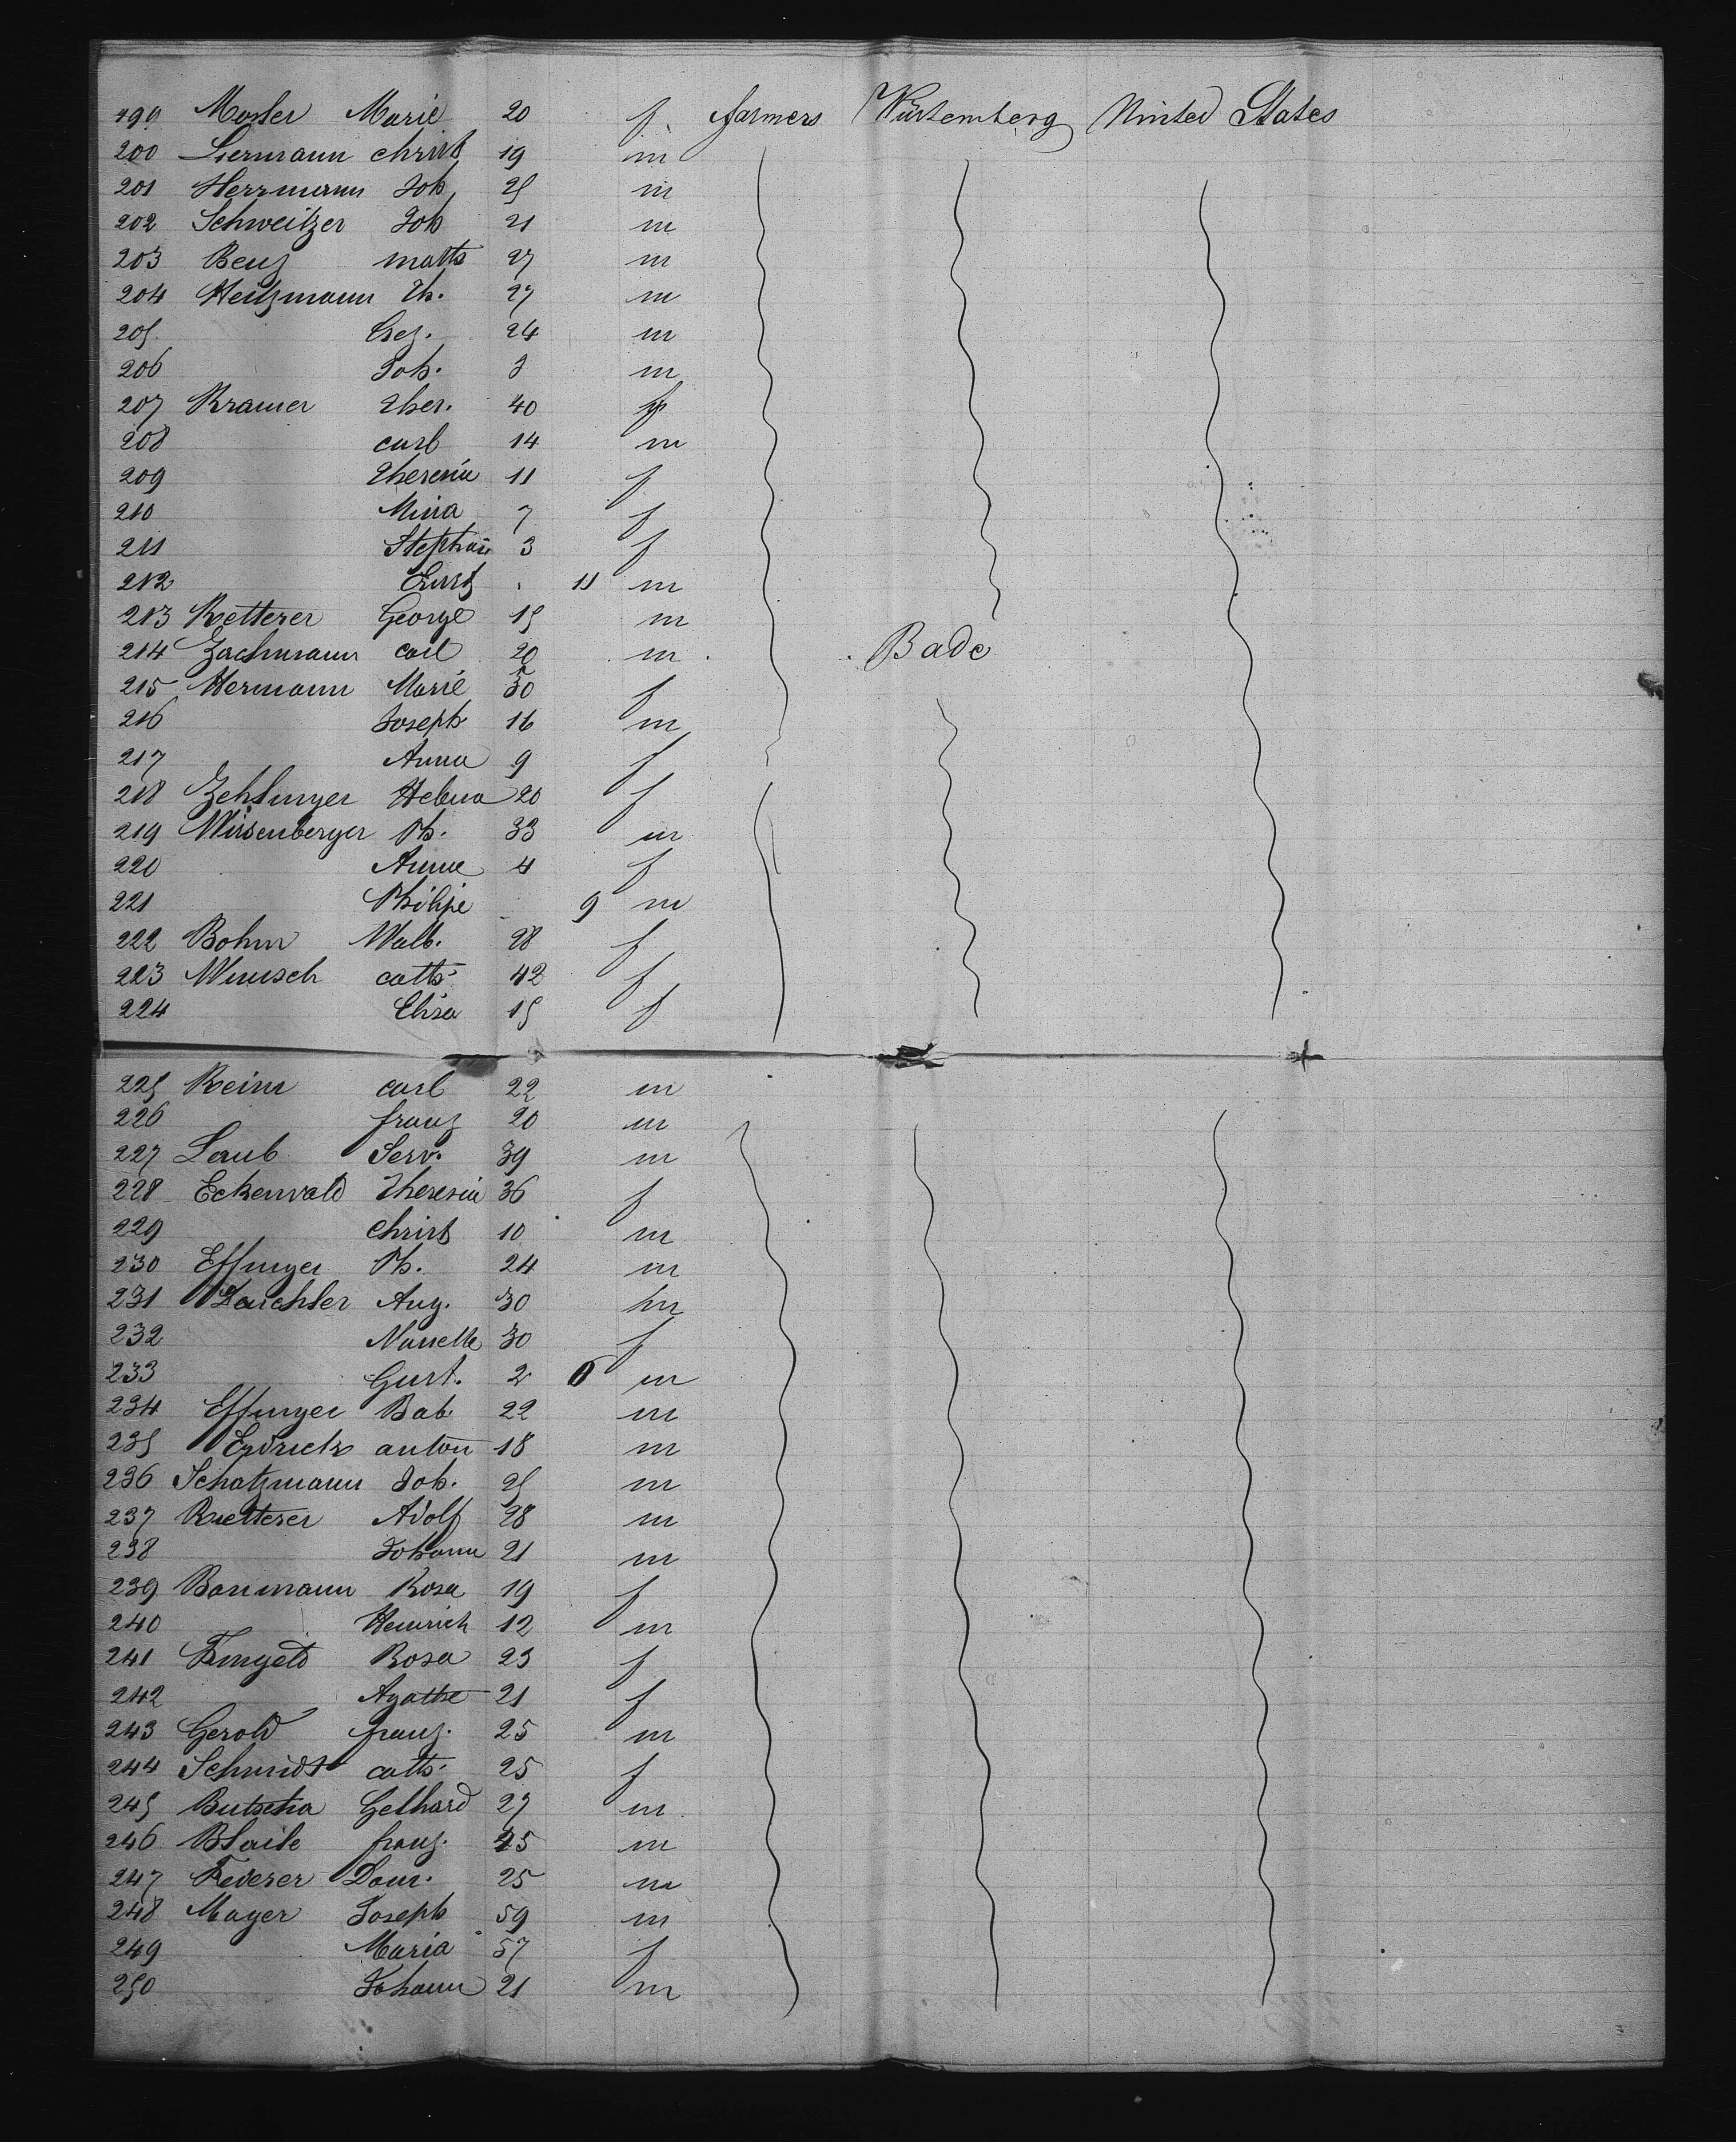 199 Mosler Marie 20 f farmers Würtemberg Uninted States
200 Liermann christ 19 m
201 Herrmann Joh 25 m
202 Schweitzer Joh 21 m
203 Benz matts 27 m
204 Heitzmann Th. 27 m
205 Crez. 24 m
206 Joh. 3 m
207 Kramer Ther. 40 f
208 carl 14 m
209 Theresia 11 f
210 Mina 7 f
211 Stephan 3 f
212 Ernst 11 m
213 Ketterer George 15 m
214 Zachmann carl 20 m Bade
215 Hermann Marie 50 f
216 Joseph 16 m
217 Anna 9 f
218 Zehlinger Helena 20 f
219 Wissenberger Ph. 33 m
220 Anna 4 f
221 Philipe 9 m
222 Bohm Walb. 28 f
223 Wunsch cath 42 f
224 Elisa 15 f
225 Keim carl 22 m
226 franz 20 m
227 Laub Serv. 39 m
228 Eckenwald Theresia 36 f
229 christ 10 m
230 Effinger Ph. 24 m
231 Daichler Aug. 30 m
232 Nanette 30 f
233 Gust. 2 6 m
234 Effinger Bab 22 m
235 Endrich anton 18 m
236 Schatzmann Joh. 25 m
237 Ruetterer Adolf 28 m
238 Johann 21 m
239 Baumann Rosa 19 f
240 Heinrich 12 m
241 Fingeld Rosa 23 f
242 Agathe 21 f
243 Gerold franz. 25 m
244 Schmidt cath 25 f
245 Butscha Gelhard 27 m
246 Blaile franz. 25 m
247 Federer Dom. 25 m
248 Mayer Joseph 59 m
249 Maria 57 f
250 Johann 21 m